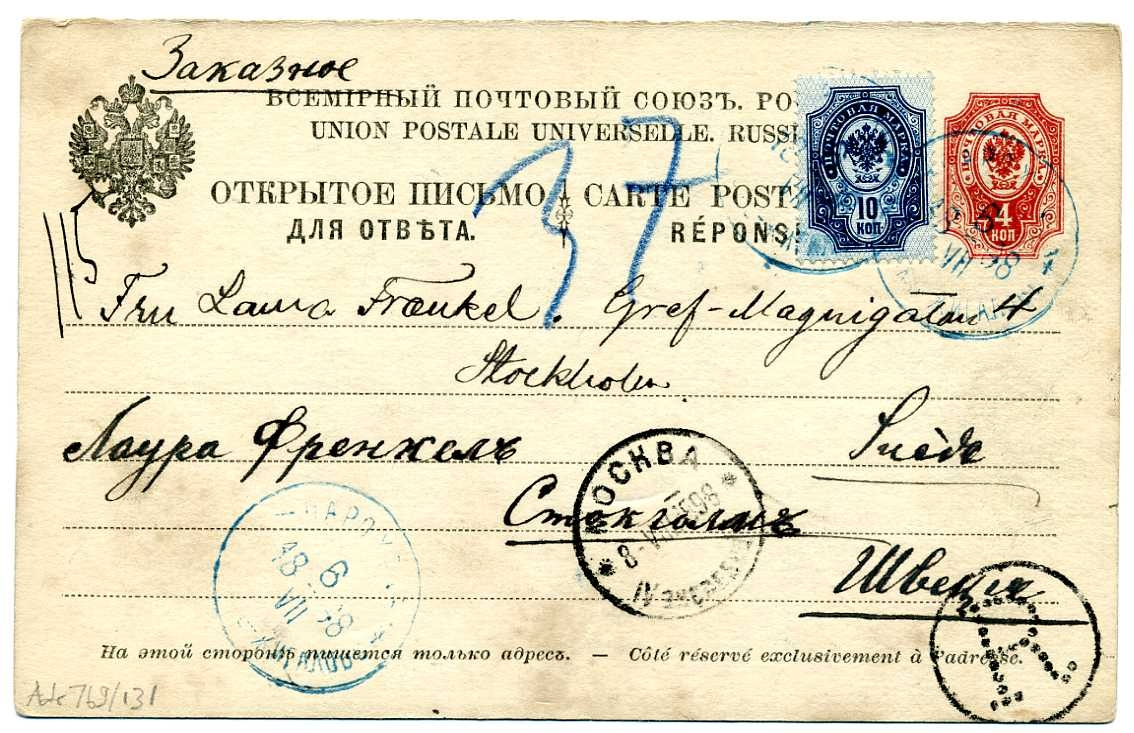 Заказное
ВСЕМІРНЫЙ ПОЧТОВЫЙ СОЮЗЪ. РО
UNION POSTALE UNIVERSELLE. RUSSI
ОТКРЫТОЕ ПИСЬМО CARTE POST
ДЛЯ ОТВѢТА. RÉPONS
ПОЧТОВАЯ МАРКА
10 КОП
ПОЧТОВАЯ МАРКА
4 КОП
37
115
VII 98
4
Fru Laura Frænkel. Gref-Magnigatan 4
Stockholm
Лаура Френкель Suède
МОСКВА
8-VII 1898
Стокгольмъ
Швеція
6
VII 98
На этой сторонѣ пишется только адресъ. — Côté réservé exclusivement à l'adresse.
769/131